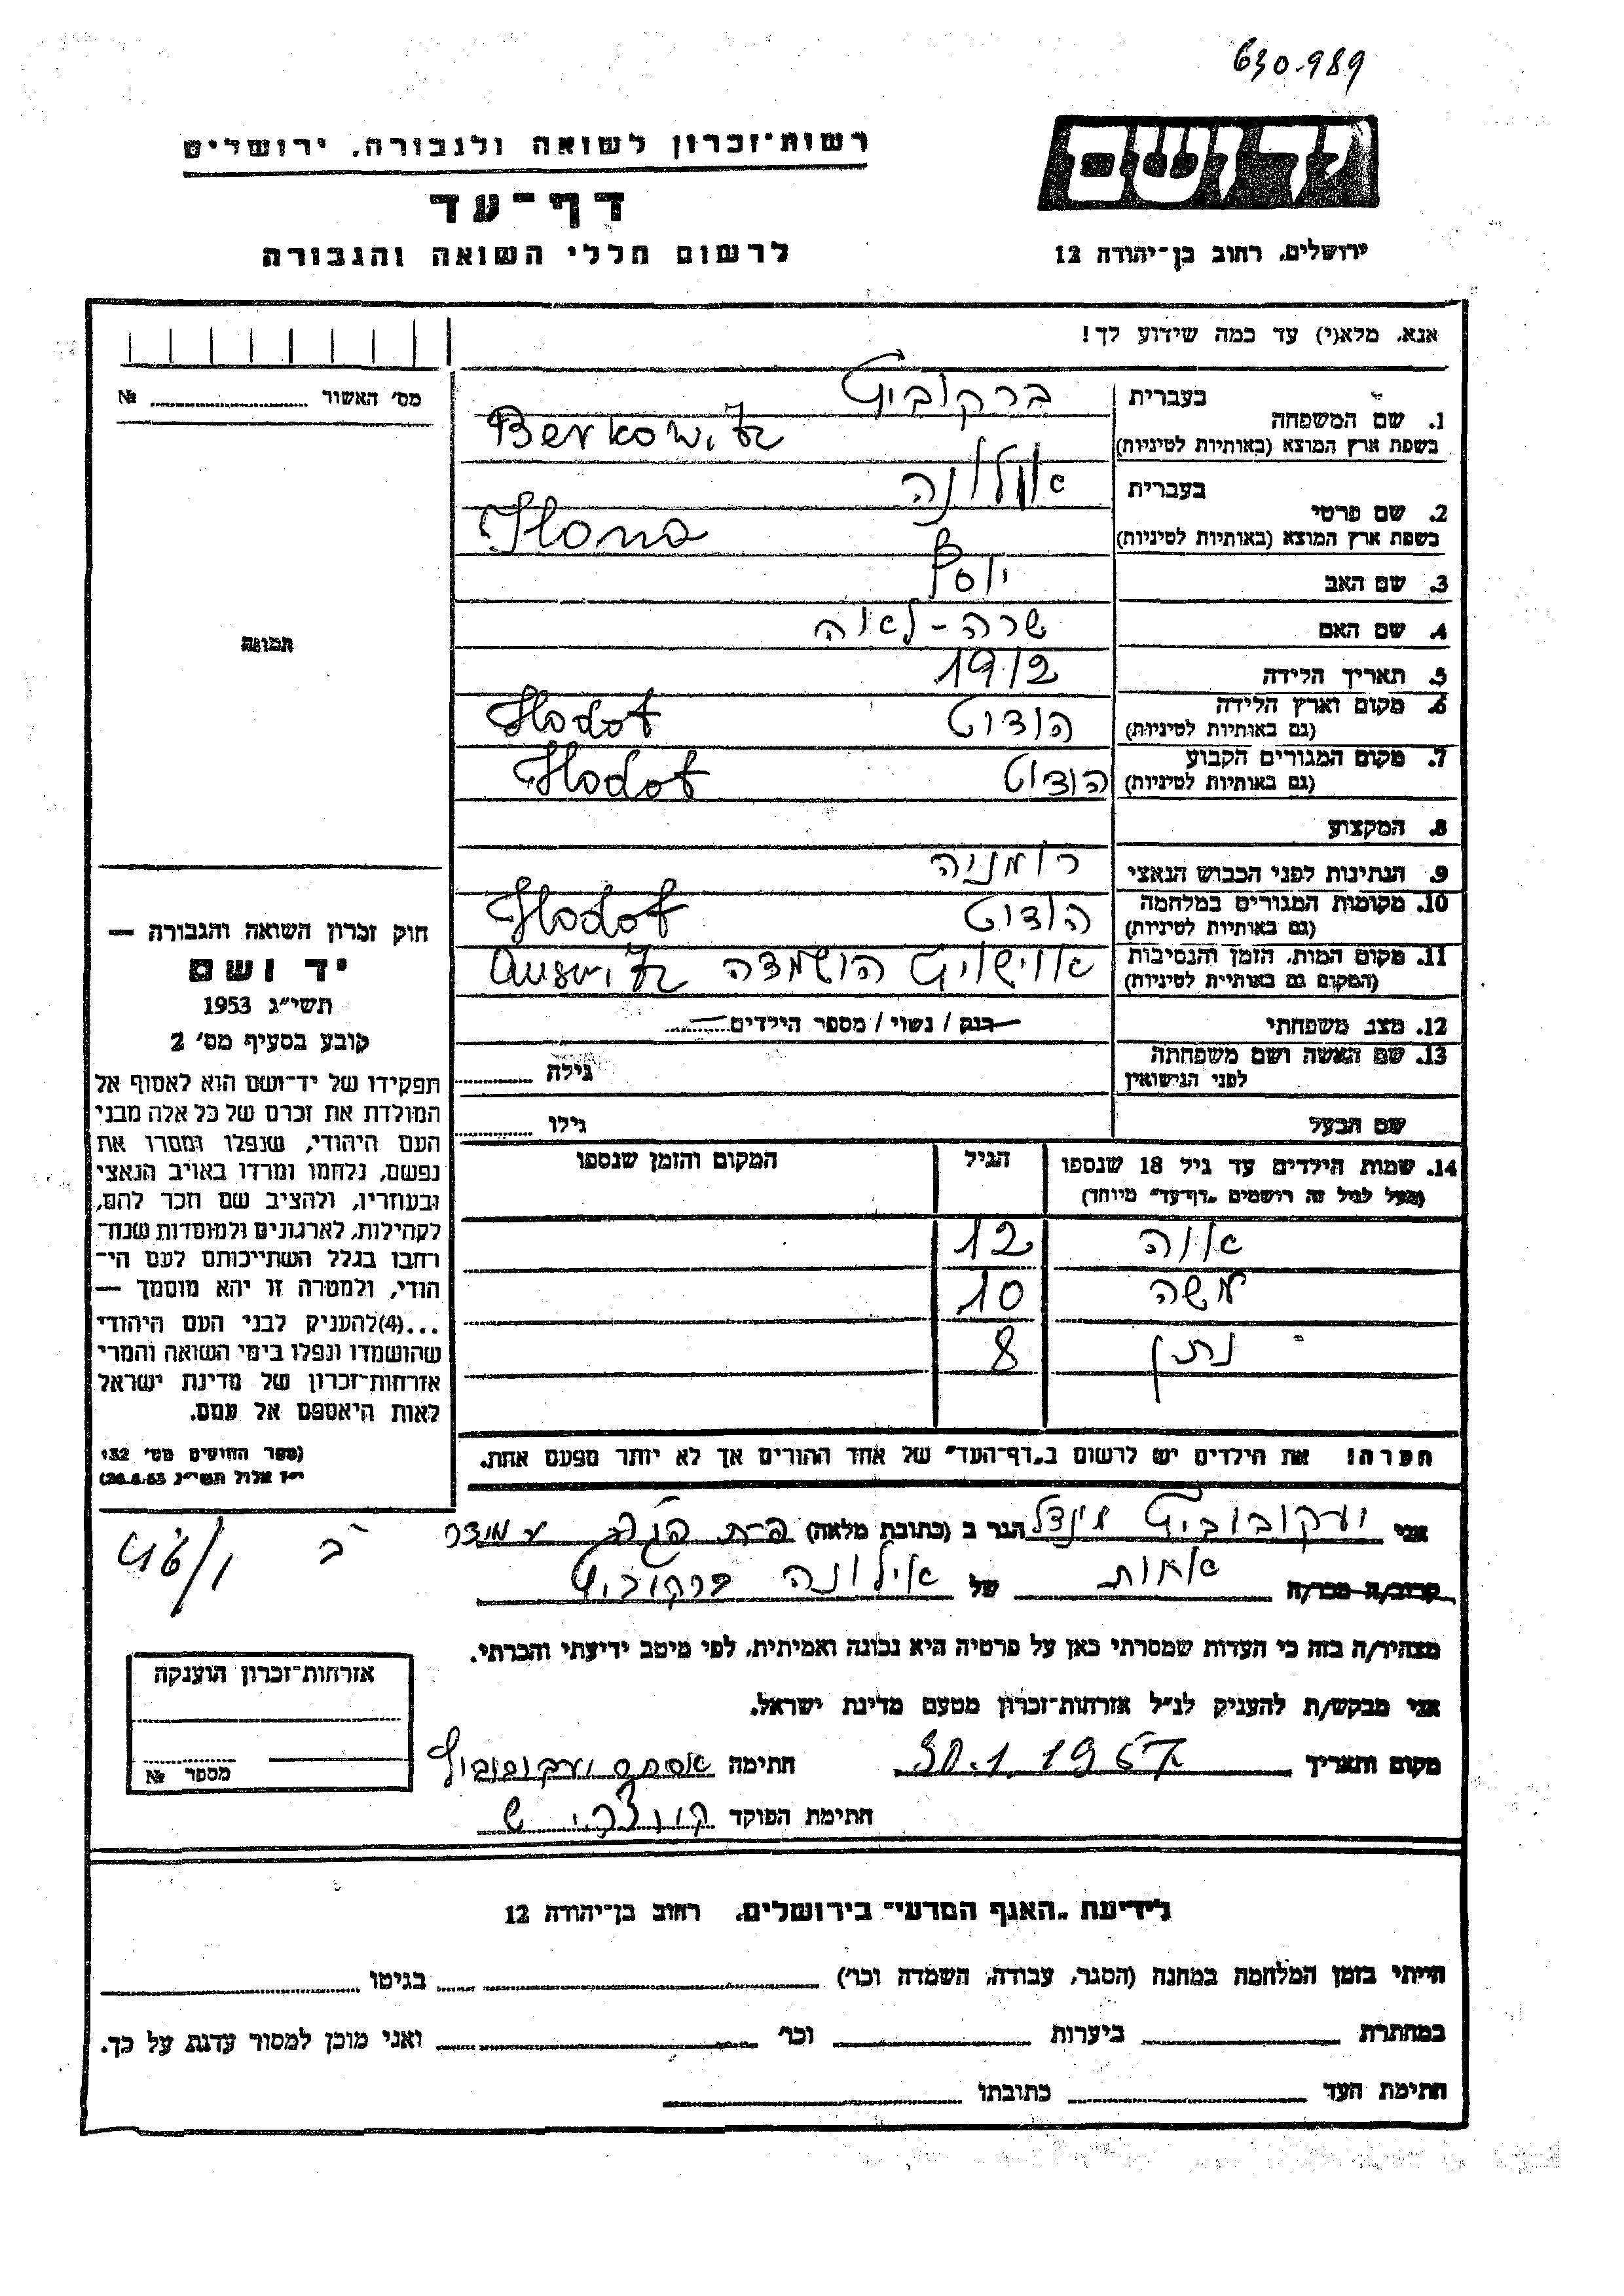 630.989
רשות־זכרון לשואה ולגבורה, ירושלים
יד ושם
דף־עד
לרשום חללי השואה והגבורה
ירושלים, רחוב בן־יהודה 12
אנא, מלא(י) עד כמה שידוע לך!
מס' האשור № ........
1. שם המשפחה
בעברית ברקוביץ
בשפת ארץ המוצא (באותיות לטיניות) Berkowitz
2. שם פרטי
בעברית אילונה
בשפת ארץ המוצא (באותיות לטיניות) Ilona
3. שם האב יוסף
4. שם האם שרה-לאה
תמונה
5. תאריך הלידה 1912
6. מקום וארץ הלידה הודוט Hodot
(גם באותיות לטיניות)
7. מקום המגורים הקבוע הודוט Hodot
(גם באותיות לטיניות)
8. המקצוע
9. הנתינות לפני הכבוש הנאצי רומניה
10. מקומות המגורים במלחמה הודוט Hodot
(גם באותיות לטיניות)
11. מקום המות, הזמן והנסיבות אוישויץ הושמדה Auswitz
(המקום גם באותיות לטיניות)
12. מצב משפחתי רווק / נשוי / מספר הילדים........
13. שם האשה ושם משפחתה
לפני הנישואין
גילה ........
שם הבעל גילו ........
14. שמות הילדים עד גיל 18 שנספו הגיל המקום והזמן שנספו
(מעל לגיל זה רושמים „דף־עד" מיוחד)
אווה 12
משה 10
נתן 8
הערה: את הילדים יש לרשום ב„דף־העד" של אחד ההורים אך לא יותר מפעם אחת.
חוק זכרון השואה והגבורה —
יד ושם
תשי"ג 1953
קובע בסעיף מס' 2
תפקידו של יד־ושם הוא לאסוף אל
המולדת את זכרם של כל אלה מבני
העם היהודי, שנפלו ומסרו את
נפשם, נלחמו ומרדו באויב הנאצי
ובעוזריו, ולהציב שם וזכר להם,
לקהילות, לארגונים ולמוסדות שנח־
רחבו בגלל השתייכותם לעם הי־
הודי, ולמטרה זו יהא מוסמך —
...(4)להעניק לבני העם היהודי
שהושמדו ונפלו בימי השואה והמרי
אזרחות־זכרון של מדינת ישראל
לאות היאספם אל עמם.
(ספר החוקים מס' 132
י"ז אלול תשי"ג 28.8.53)
אני יעקובוביץ הגר ב (כתובת מלאה)
קרוב/ה מכר/ה אחות של אילונה ברקוביץ
מצהיר/ה בזה כי העדות שמסרתי כאן על פרטיה היא נכונה ואמיתית, לפי מיטב ידיעתי והכרתי.
אני מבקש/ת להעניק לנ"ל אזרחות־זכרון מטעם מדינת ישראל.
מקום ותאריך 30.1.1957 חתימה
חתימת הפוקד
אזרחות־זכרון הוענקה
מספר №
לידיעת „האגף המדעי" בירושלים, רחוב בן־יהודה 12
הייתי בזמן המלחמה במחנה (הסגר, עבודה, השמדה וכו') ........ בגיטו ........
במחתרת ........ ביערות ........ וכו' ........ ואני מוכן למסור עדות על כך.
חתימת העד ........ כתובתו ........